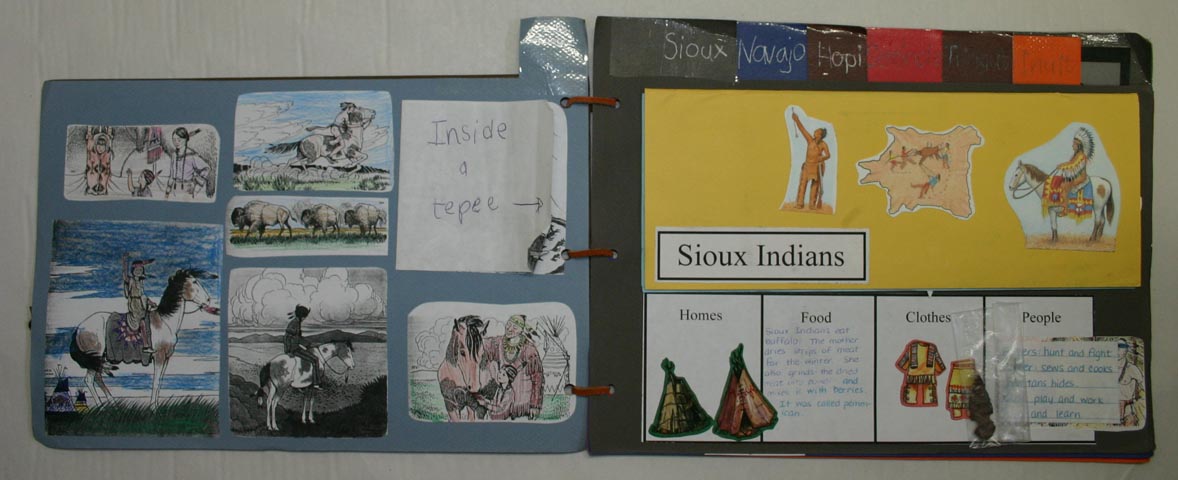 Inside
a
tepee →
Sioux Navajo Hopi Inuit
Sioux Indians
Homes
Food
Sioux Indians eat
buffalo. The mother
dries strips of meat
for the winter. She
also grinds the dried
meat into and
mixes it with berries
It was called pemm-
ican.
Clothes
People
hunt and fight
sews and cooks
tans hides
play and work
and learn